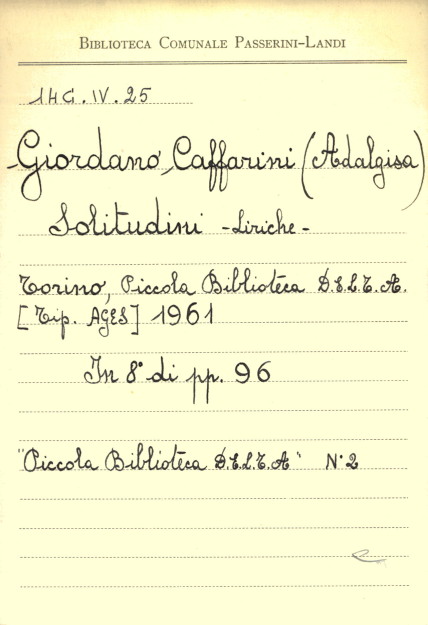 BIBLIOTECA COMUNALE PASSERINI-LANDI
1HG.IV.25
Giordano Caffarini (Adalgisa)
Solitudini - Liriche -
Torino, Piccola Biblioteca D.E.L.T.A.
[Tip. AGES] 1961
In 8° di pp. 96
"Piccola Biblioteca D.E.L.T.A" N° 2